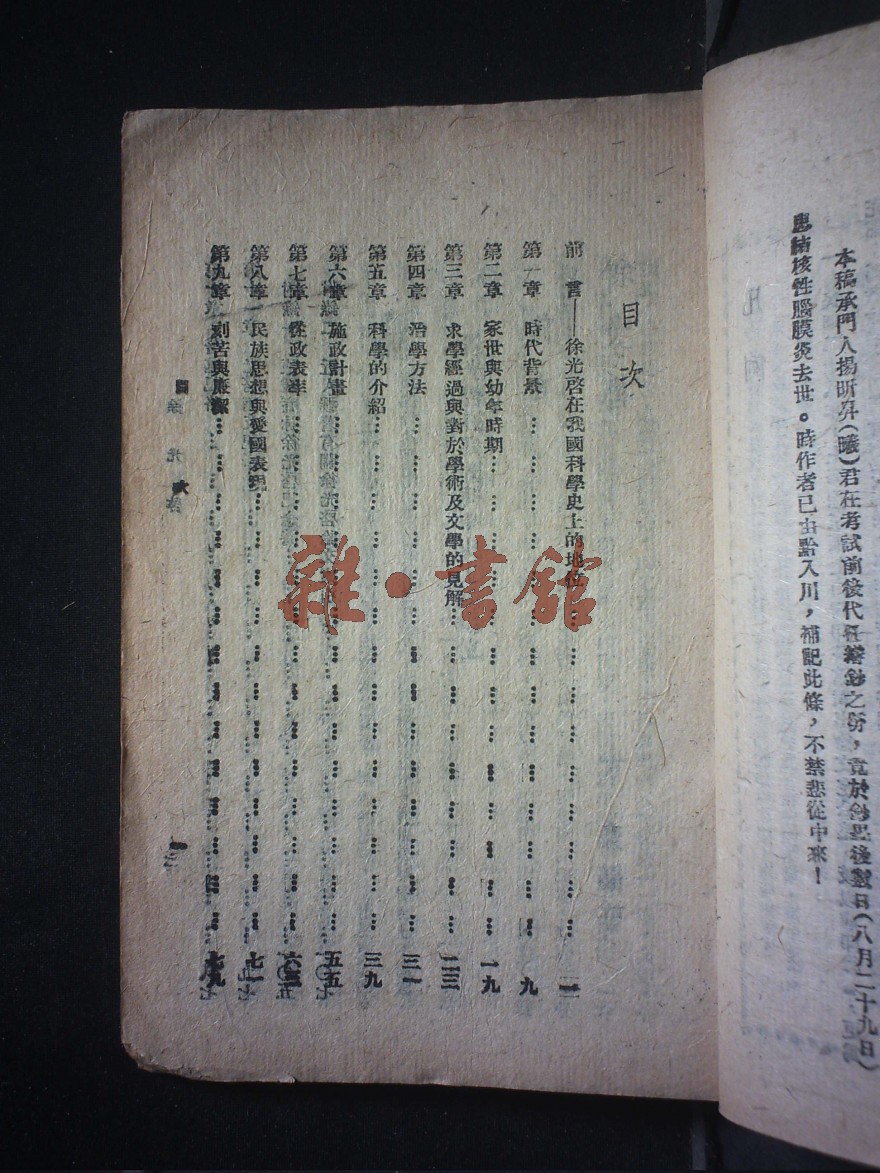 本稿承門人揚昕昇(曦)君在考試前後代任繕鈔之勞,竟於鈔畢後數日(八月二十九日)
患結核性腦膜炎去世。時作者已由黔入川,補記此條,不禁悲從中來!
目次
前言——徐光啓在我國科學史上的地位………一
第一章 時代背景………九
第二章 家世與幼年時期………一九
第三章 求學經過與對於學術及文學的見解………二三
第四章 治學方法………三一
第五章 科學的介紹………三九
第六章 施政計畫………五五
第七章 從政表率………六三
第八章 民族思想與愛國表現………七一
第九章 刻苦與廉潔………七九
徐光啓
雜·書館